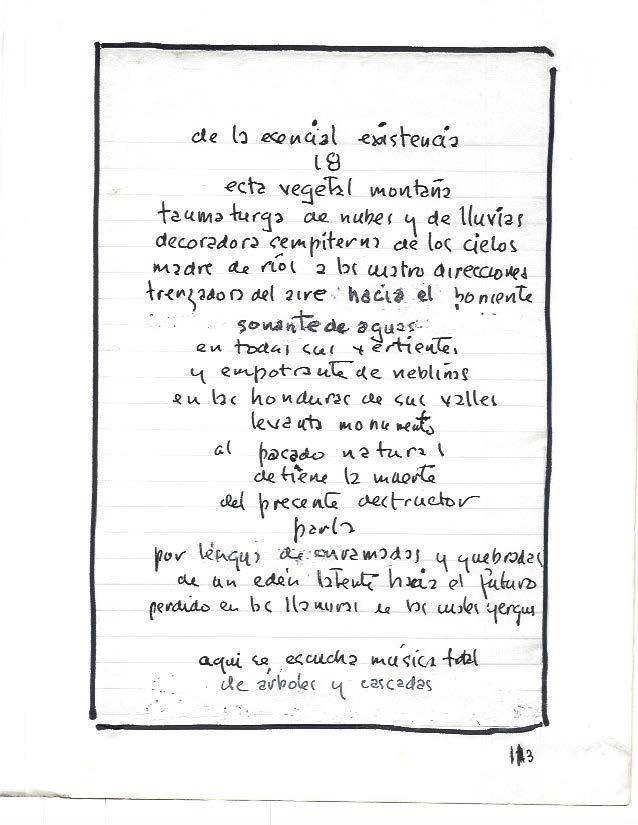 de la esencial existencia
18
esta vegetal montaña
taumaturga de nubes y de lluvias
decoradora sempiterna de los cielos
madre de ríos a las cuatro direcciones
trenzadora del aire hacia el poniente
sonante de aguas
en todas sus vertientes
y empotrante de neblinas
en las honduras de sus valles
levanta monumento
al pasado natural
detiene la muerte
del presente destructor
parla
por lengua de enramadas y quebradas
de un edén latente hacia el futuro
perdido en las llanuras en las cuales yergue
aqui se escucha música total
de árboles y cascadas
113